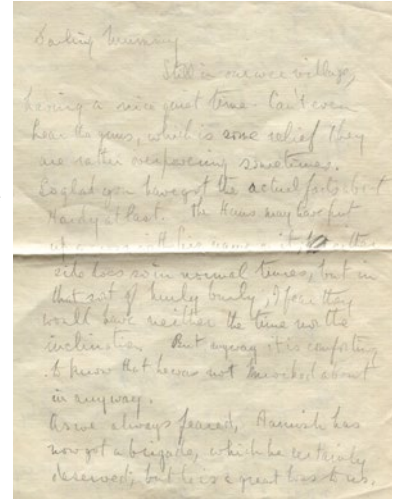 Darling Mummy
Still in our wee village,
having a nice quiet time. Can't even
hear the guns, which is some relief they
are rather overpowering sometimes.
So glad you have got the actual facts about
Hardy at last. The Huns may have put
up a cross with his name on it,
side does so in normal times, but in
that sort of hurly burly, I fear they
would have neither the time nor the
inclination But anyway it is comforting
to know that he was not knocked about
in anyway.
As we always feared, Hamish has
now got a brigade, which he certainly
deserved, but he is a great loss to us.